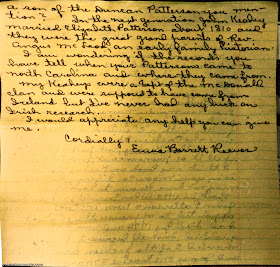 a son of the Duncan Patterson you men-
tion?
In the next generation John Keahey
married Elizabeth Patterson about 1810 and
they were the great grand parents of Rev.
Angus Mc an early family historian.
I am wondering if the records you
have tell when your Pattersons came to
north Carolina and where they came from.
my Keaheys were a Sept of the McDonald
clan and were suppose to have come from
Ireland but I've never had any luck on
Irish research.
I would appreciate any help you can give
me.
Cordially,
Barrett Reeves